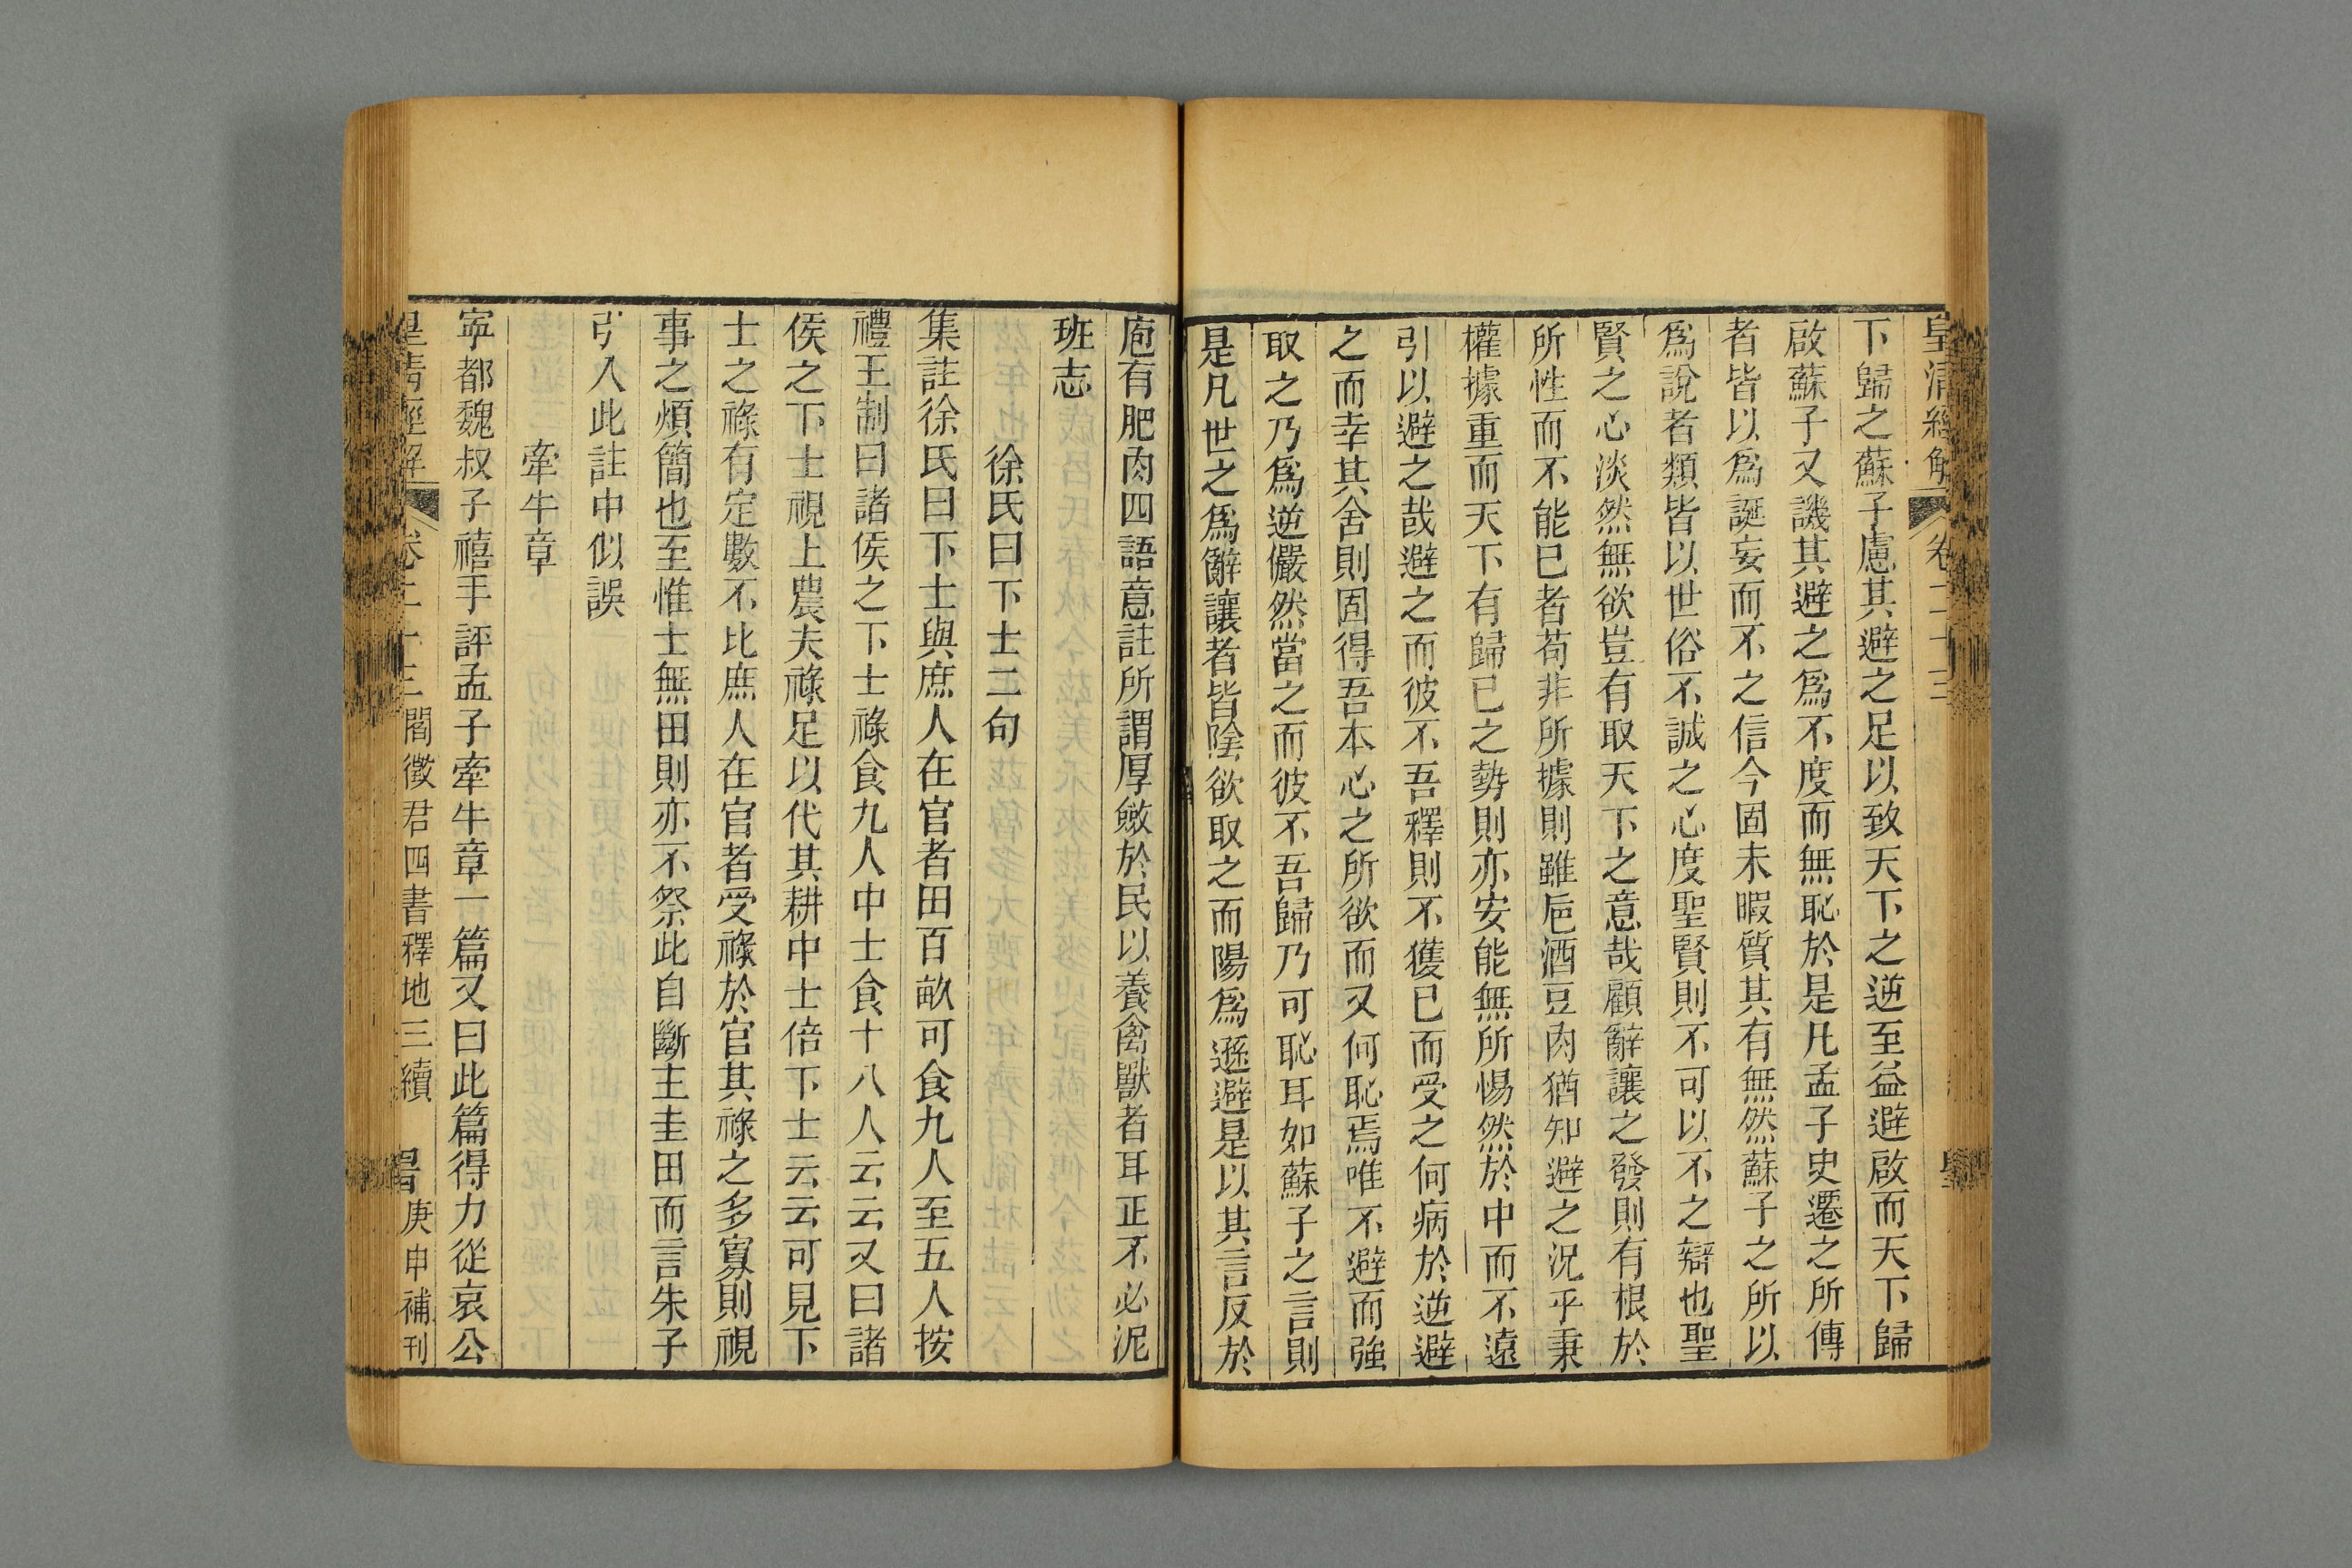 皇清經解 卷二十三
下歸之蘇子慮其避之足以致天下之逆至益避啟而天下歸
啟蘇子又譏其避之爲不度而無恥於是凡孟子史遷之所傳
者皆以爲誕妄而不之信今固未暇質其有無然蘇子之所以
爲說者類皆以世俗不誠之心度聖賢則不可以不之辯也聖
賢之心淡然無欲豈有取天下之意哉顧辭讓之發則有根於
所性而不能已者苟非所據則雖卮酒豆肉猶知避之況乎秉
權據重而天下有歸已之勢則亦安能無所惕然於中而不遠
引以避之哉避之而彼不吾釋則不獲已而受之何病於逆避
之而幸其舍則固得吾本心之所欲而又何恥焉唯不避而強
取之乃爲逆儼然當之而彼不吾歸乃可恥耳如蘇子之言則
是凡世之爲辭讓者皆陰欲取之而陽爲遜避是以其言反於
庖有肥肉四語意註所謂厚斂於民以養禽獸者耳正不必泥
班志
徐氏曰下士二句
集註徐氏曰下士與庶人在官者田百畝可食九人至五人按
禮王制曰諸侯之下士祿食九人中士食十八人云云又曰諸
侯之下士視上農夫祿足以代其耕中士倍下士云云可見下
士之祿有定數不比庶人在官者受祿於官其祿之多寡則視
事之煩簡也至惟士無田則亦不祭此自斷主圭田而言朱子
引入此註中似誤
牽牛章
寧都魏叔子禧手評孟子牽牛章一篇又曰此篇得力從哀公
皇清經解 卷二十三 閻徵君四書釋地三續 庚申補刊